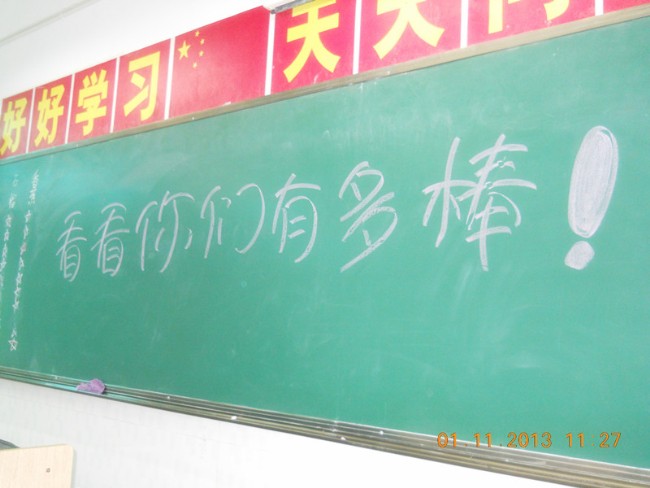 好好学习 天天向
看看你们有多棒！
01.11.2013 11:27